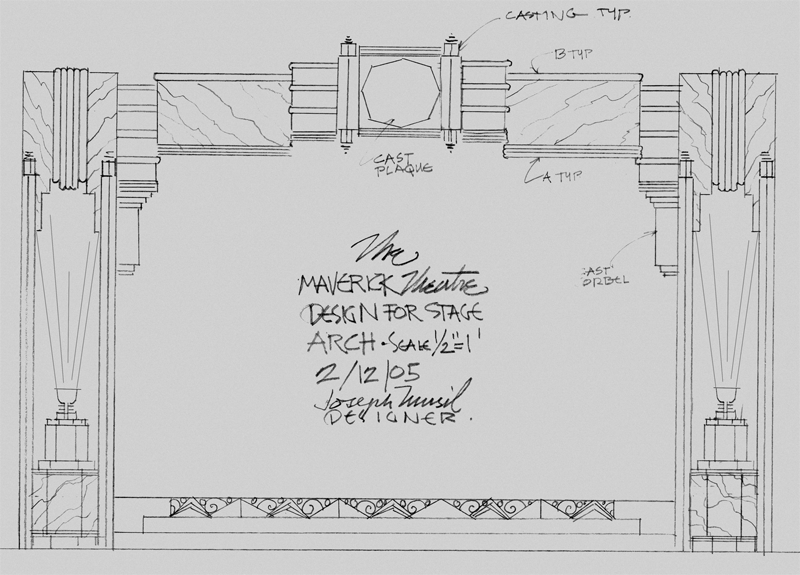 CASTING TYP.
B TYP
CAST
PLAQUE
A TYP
AST
ORBEL
The
MAVERICK Theatre
DESIGN FOR STAGE
ARCH • SCALE 1/2"=1'
2/12/05
Joseph Musil
DESIGNER.